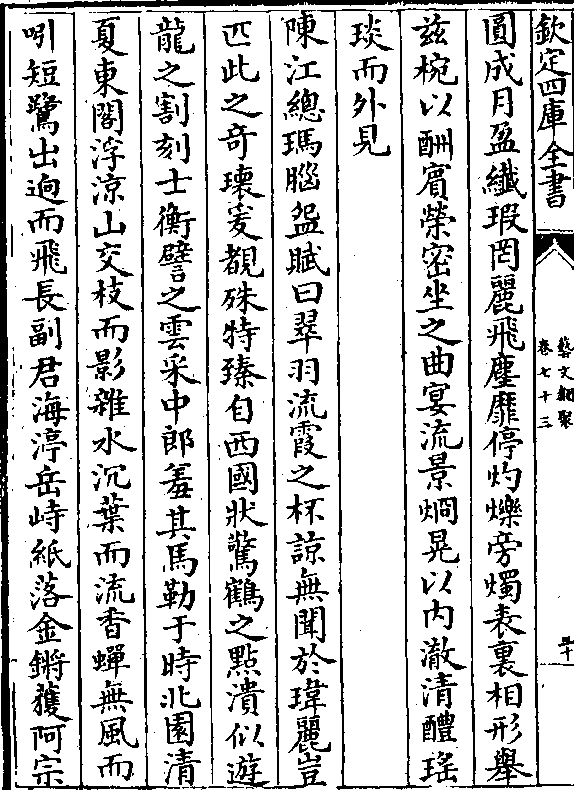 欽定四庫全書
藝文類聚
卷七十三
二十
圓成月盈纖瑕罔麗飛塵靡停灼爍旁燭表裏相形舉
兹椀以酬賓榮密坐之曲宴流景烱晃以内澈清醴瑤
琰而外見
陳江總瑪腦盌賦曰翠羽流霞之杯諒無聞於瑋麗豈
匹此之奇瓌爰覩殊特臻自西國狀驚鶴之點潰似遊
龍之割刻士衡譬之雲采中郎羞其馬勒于時北園清
夏東閣浮涼山交枝而影雜水沉葉而流香蟬無風而
吲短鷺出逈而飛長副君海渟岳峙紙落金鏘獲阿宗